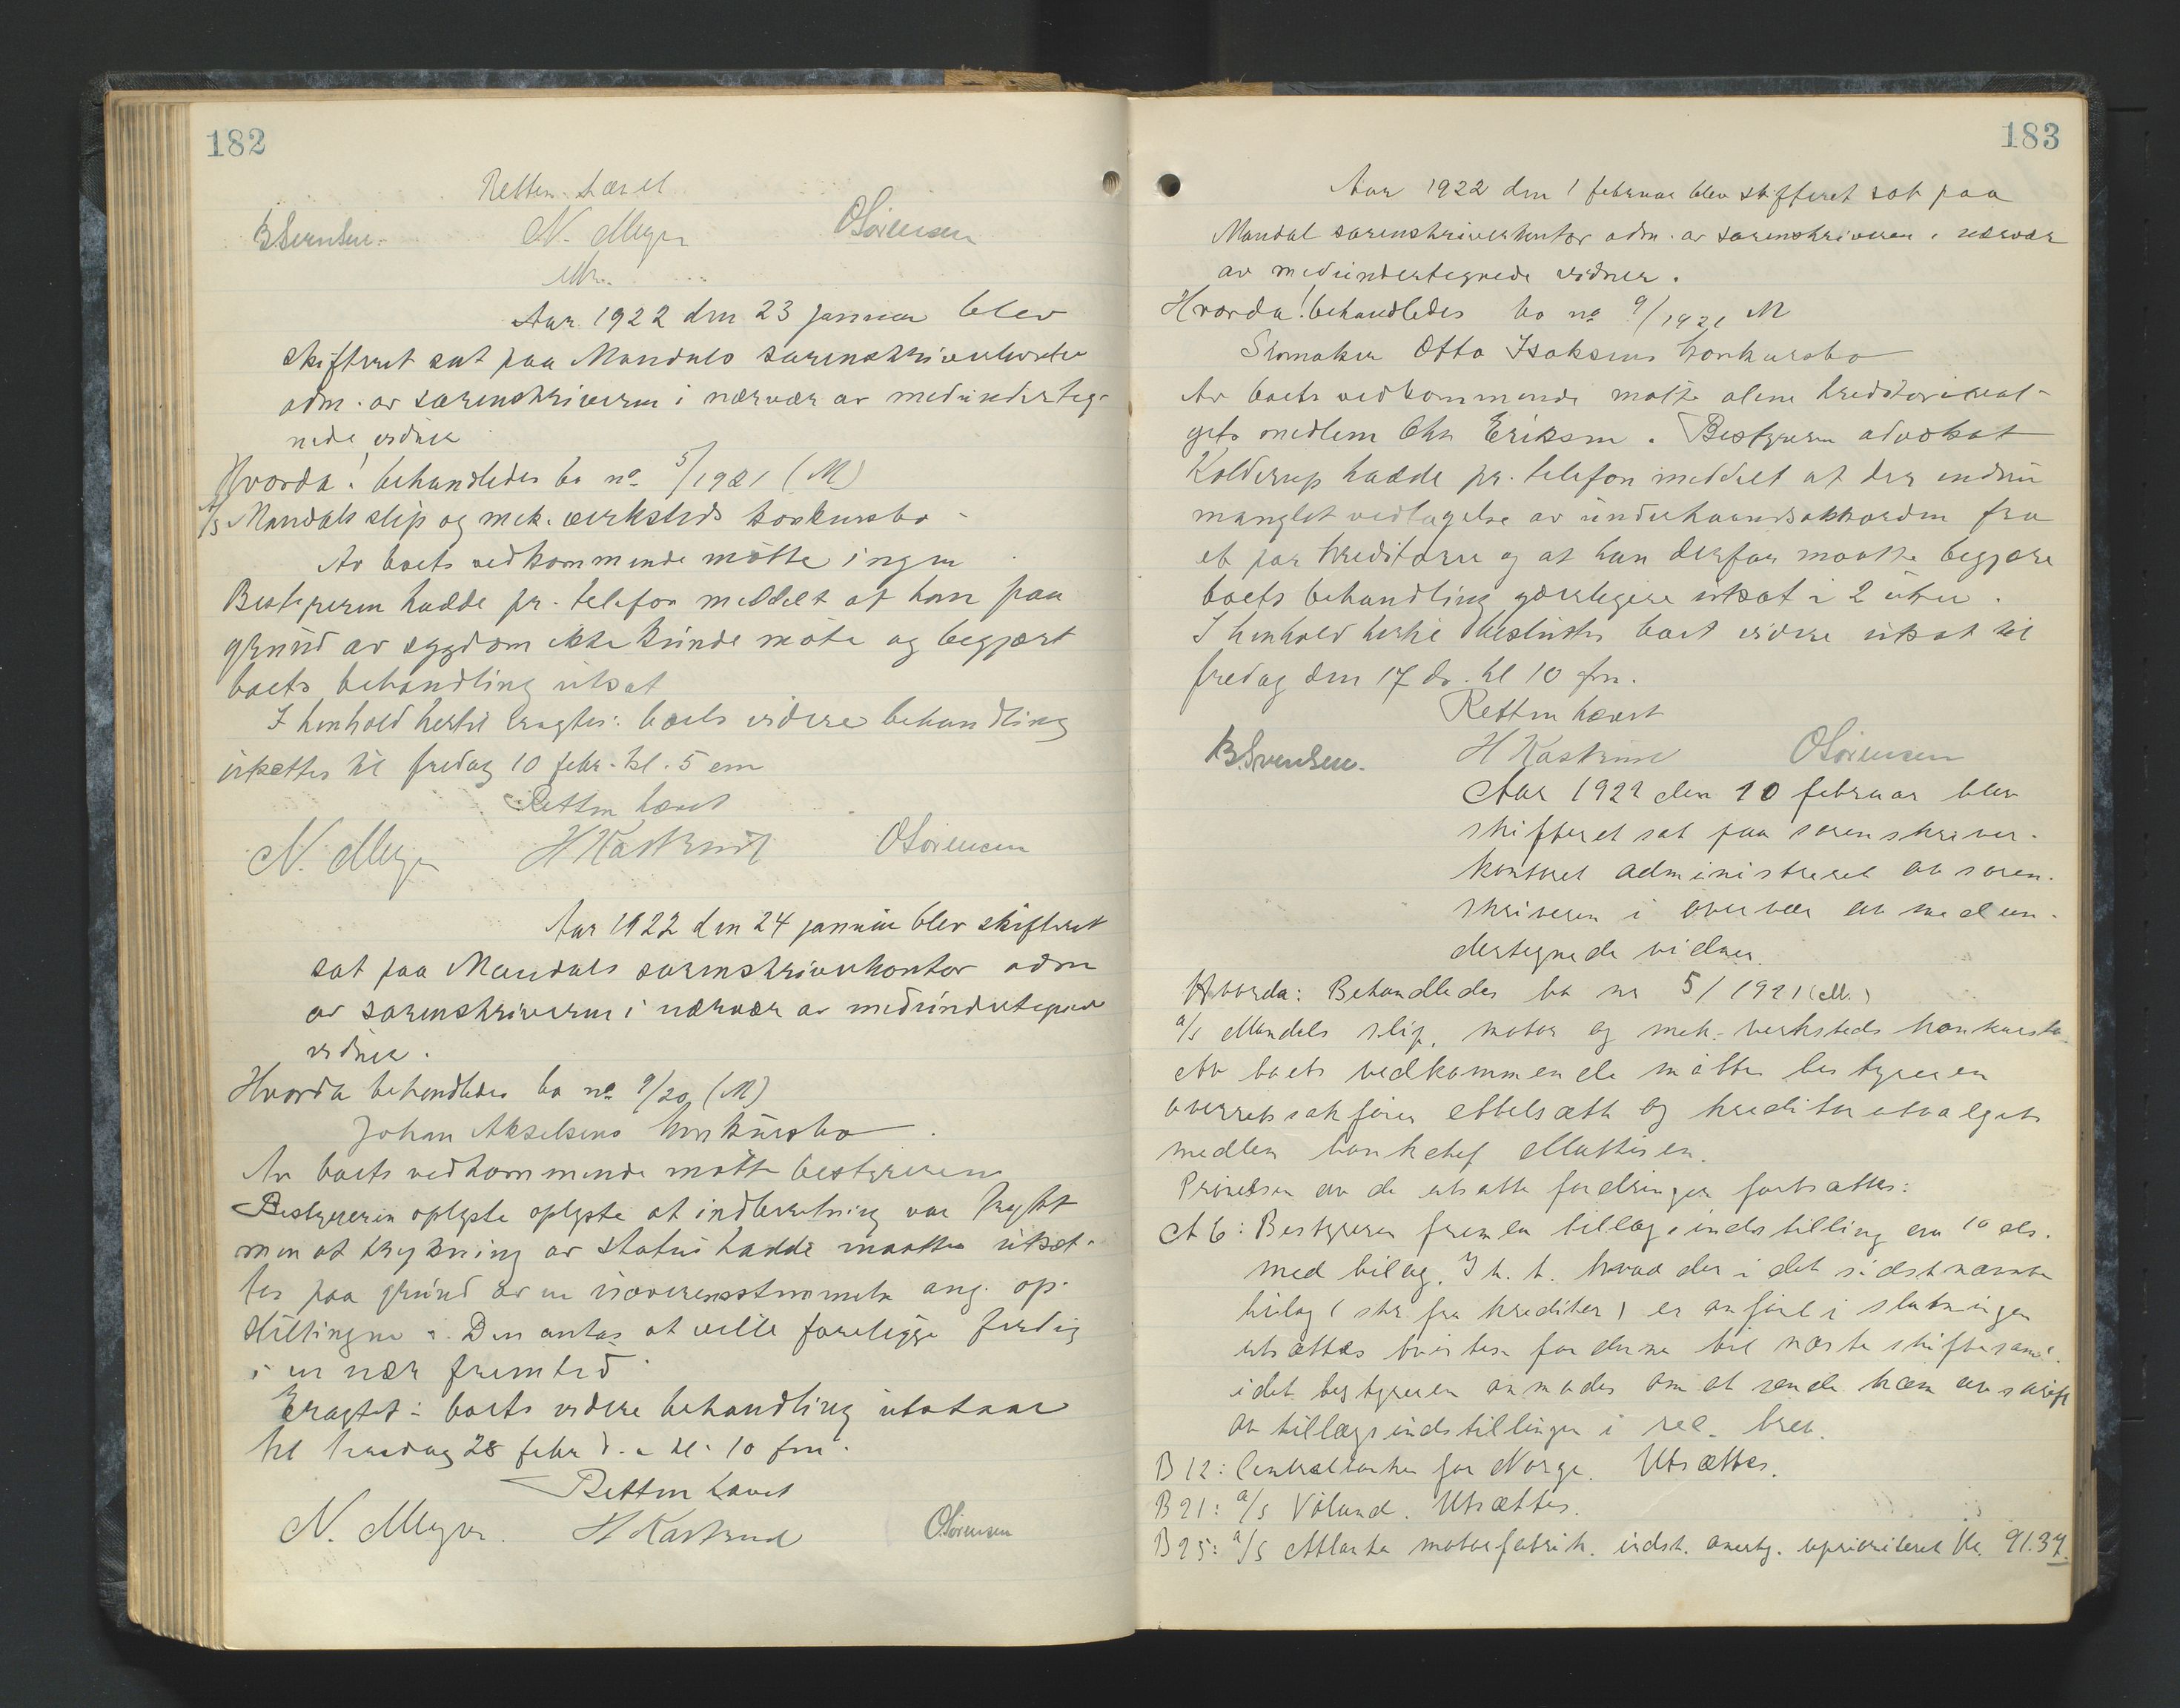 182
Retten hævet
B Svendsen. N. Meyer O Sørensen
Aar 1922 den 23 januar blev
skifteret sat paa Mandals sorenskriverkontor
adm. av sorenskriveren i nærvær av medunderteg-
nede vidner
Hvorda! behandledes bo no 5/1921 (M)
A/S Mandals slip og mek. verksteds konkursbo -
Av boets vedkommende møtte ingen
Bestyreren hadde pr. telefon meddelt at han paa
grund av sygdom ikke kunde møte og begjært
boets behandling utsat
I henhold hertil eragtes: boets videre behandling
utsættes til fredag 10 febr. kl. 5 em
Retten hævet
N. Meyer H Kastrud O Sørensen
Aar 1922 den 24 januar blev skifteret
sat paa Mandals sorenskriverkontor adm
av sorenskriveren i nærvær av medundertegnede
vidner.
Hvorda behandledes bo no 9/20 (M)
Johan Akselsens konkursbo.
Av boets vedkommende møtte bestyreren
Bestyreren oplyste oplyste at indberetning var trykt
men at trykning av status hadde maattet utsæt-
tes paa grund av en uoverensstemmelse ang. op-
stillingen. Den antas at ville foreligge færdig
i en nær fremtid
Eragtet: boets videre behandling utstaar
til tirsdag 28 febr d. a kl. 10 fm.
Retten hævet
N. Meyer. H Kastrud O. Sørensen
183
Aar 1922 den 1 februar blev skifteret sat paa
Mandal sorenskriverkontor adm. av sorenskriveren i nærvær
av medundertegnede vidner.
Hvorda! behandledes bo no 9/1921 M
Skomaker Otto Isaksens konkursbo
Av boets vedkommende møtte alene kreditorutval-
gets medlem Chr Eriksen. Bestyreren advokat
Kolderup hadde pr. telefon meddelt at der endnu
manglet vedtagelse av underhaandsakkorden fra
et par kreditorer og at han derfor maatte begjære
boets behandling yderligere utsat i 2 uker.
I henhold hertil besluttes boet videre utsat til
fredag den 17 ds. kl 10 fm.
Retten hævet
B. Svendsen. H Kastrud O Sørensen
Aar 1922 den 10 februar blev
skifteret sat paa sorenskriver-
kontoret administreret av soren-
skriveren i overvær av medun-
dertegnede vidner.
Hvorda: Behandledes bo nr 5/1921 (M.)
a/s Mandals slip, motor og mek. verksteds konkursbo.
Av boets vedkommende møtte bestyreren
overretssakfører Abelsæth og kreditorutvalgets
medlem bankchef Mathisen.
Prøvelsen av de utsatte fordringer fortsattes:
A 6: Bestyreren fremla tillægsindstilling av 10 ds.
med bilag. I h. t. hvad der i det sidstnævnte
bilag (skr. fra krediter) er anført i slutningen
utsættes tvisten for denne til næste skiftesaml.
idet bestyreren anmodes om at sende ham avskrift
av tillægsindstillingen i rec. brev.
B 12: Centralbanken for Norge. Utsættes.
B 21: a/s Völund. Utsættes.
B 25: a/s Atlanta motorfabrik. indst. anerkj. uprioriteret Kr. 91.37.